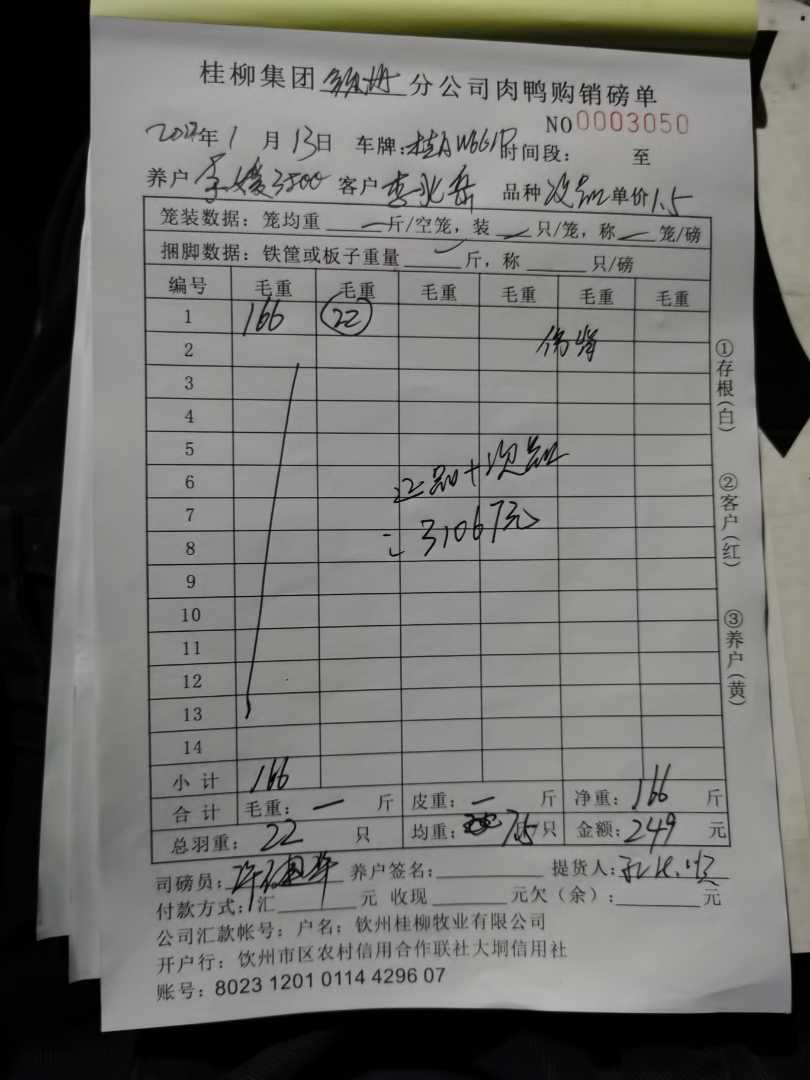 桂柳集团 分公司肉鸭购销磅单
NO 0003050
年1月13日 车牌: 时间段: 至
养户 3500 客户 李兆岳 品种 次品 单价 1.5
笼装数据: 笼均重 一 斤/空笼, 装 只/笼, 称 笼/磅
捆脚数据: 铁筐或板子重量 斤, 称 只/磅
编号 毛重 毛重 毛重 毛重 毛重 毛重
1 166 22
2
3
4
5
6 正品+次品
7
8 31067元
9
10
11
12
13
14
小计 166
合计 毛重: 一 斤 皮重: 一 斤 净重: 166 斤
总羽重: 22 只 均重: 7.5 只 金额: 249 元
司磅员: 养户签名: 提货人:
付款方式: 汇 元 收现 元欠(余): 元
公司汇款帐号: 户名: 钦州桂柳牧业有限公司
开户行: 钦州市区农村信用合作联社大垌信用社
账号: 8023 1201 0114 4296 07
①存根(白)
②客户(红)
③养户(黄)